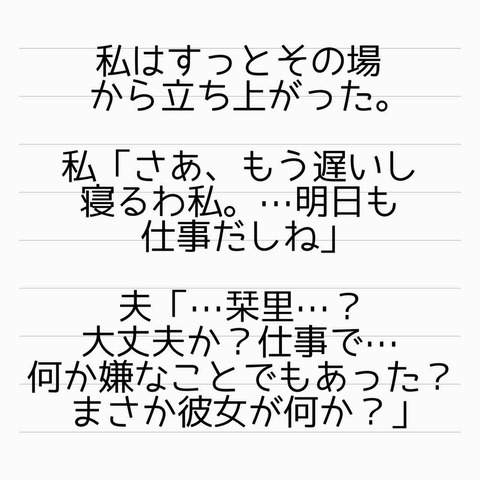 私はすっとその場
から立ち上がった。
私「さあ、もう遅いし
寝るわ私。…明日も
仕事だしね」
夫「…栞里…？
大丈夫か？仕事で…
何か嫌なことでもあった？
まさか彼女が何か？」